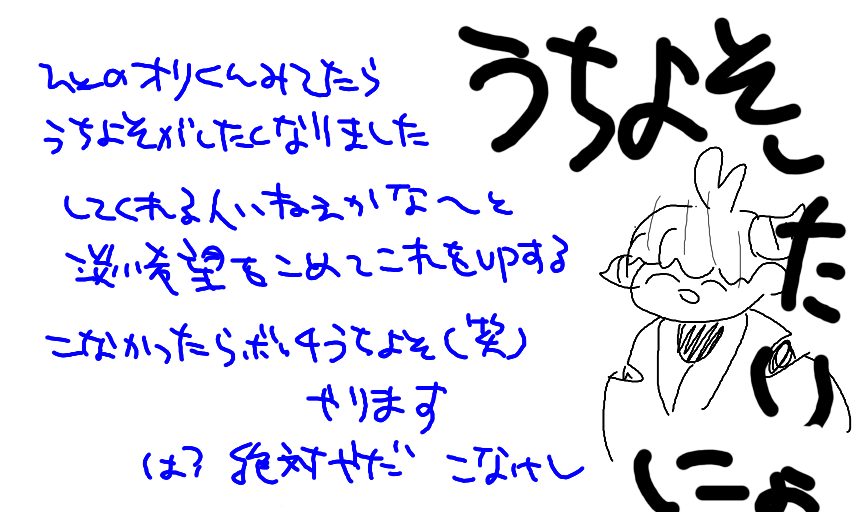 ひとのオリくんみてたら
うちよそがしたくなりました
してくれる人いねえかな〜と
淡い希望をこめてこれをupする
こなかったらボッチうちよそ(笑)
やります
は?絶対やだ こなけし
うちよそ
したり